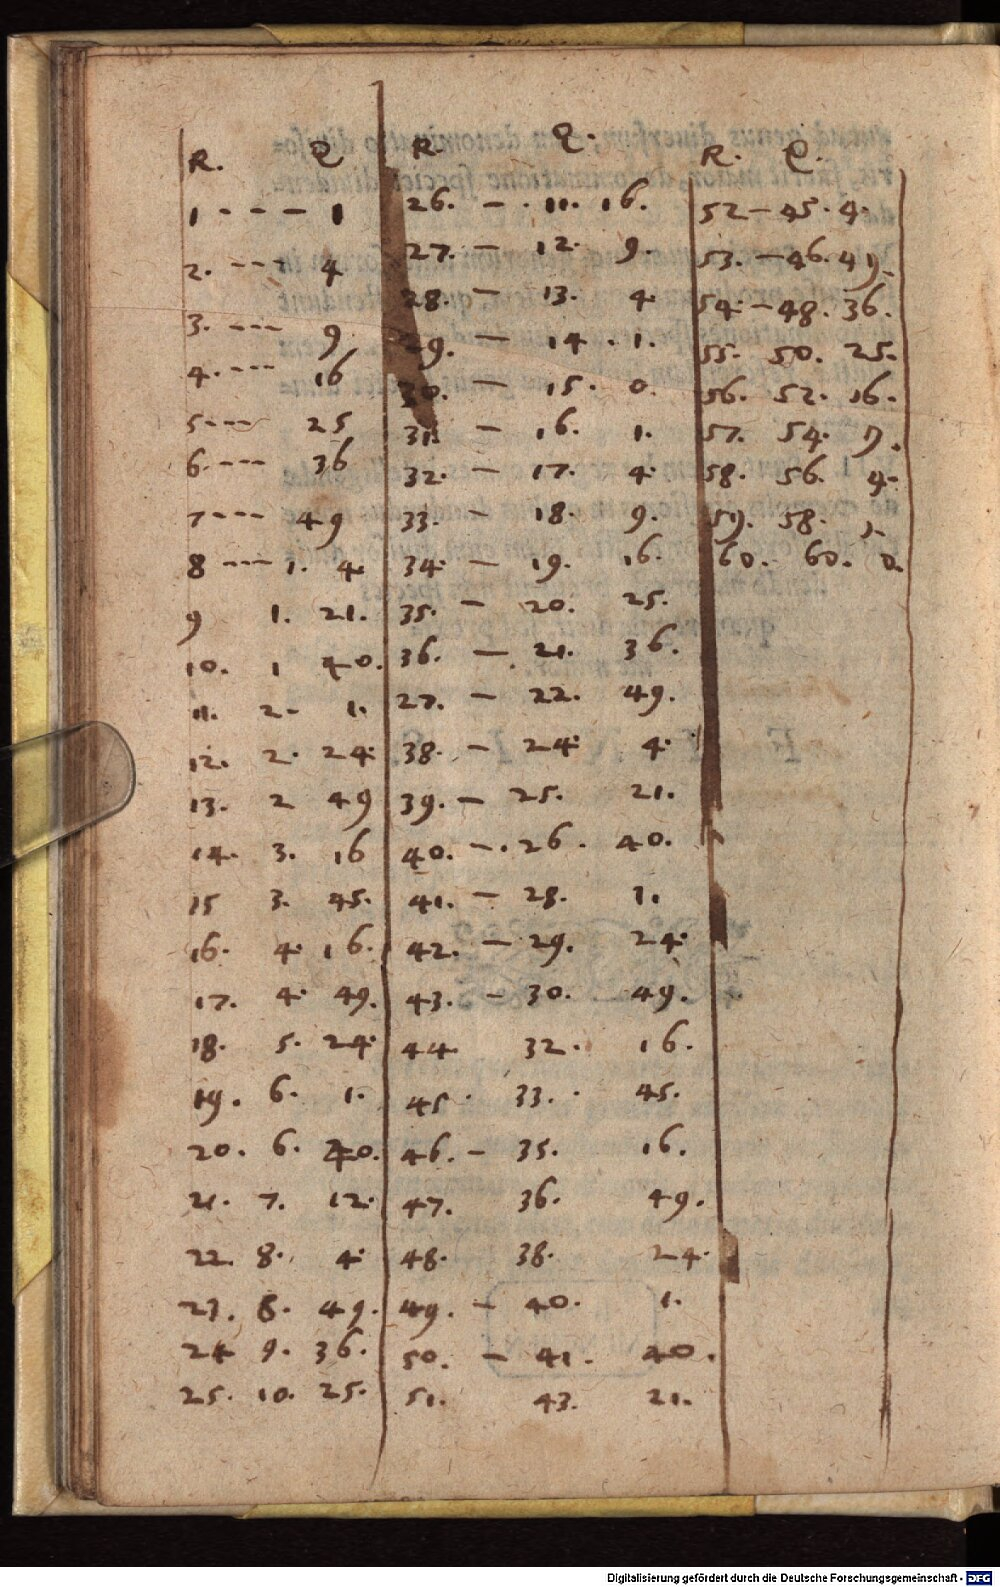 R. Q
1 - - - - 1
2. - - - 4
3. - - - 9
4. - - - 16
5 - - - 25
6. - - - 36
7 - - - 49
8 - - - 1. 4.
9 1. 21.
10. 1 40.
11. 2 - 1.
12. 2. 24.
13. 2 49
14. 3. 16
15 3. 45.
16. 4. 16.
17. 4. 49.
18. 5. 24.
19. 6. 1.
20. 6. 40.
21. 7. 12.
22. 8. 4.
23. 8. 49.
24 9. 36.
25. 10. 25.
R. Q.
26. - . 11. 16.
27. - 12. 9.
28. - 13. 4.
29. - 14. 1.
30. - 15. 0.
31. - 16. 1.
32. - 17. 4.
33. - 18. 9.
34. - 19. 16.
35. - 20. 25.
36. - . 21. 36.
27. - 22. 49.
38. - 24. 4.
39. - 25. 21.
40. - . 26. 40.
41. - 28. 1.
42. - 29. 24.
43. - 30. 49.
44. 32. 16.
45. 33. 45.
46. - 35. 16.
47. 36. 49.
48. 38. 24.
49. - 40. 1.
50. - 41. 40.
51. 43. 21.
R. Q.
52 - 45. 4.
53. - 46. 49.
54. - 48. 36.
55. 50. 25.
56. 52. 16.
57. 54. 9.
58. 56. 4.
59. 58. 1.
60. 60. 0.
Digitalisierung gefördert durch die Deutsche Forschungsgemeinschaft - DFG